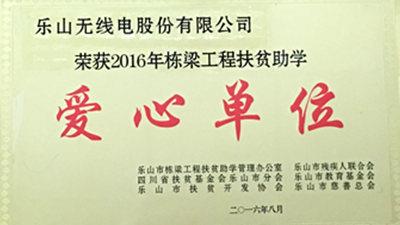 乐山无线电股份有限公司
荣获2016年栋梁工程扶贫助学
爱心单位
乐山市栋梁工程扶贫助学管理办公室 乐山市残疾人联合会
四川省扶贫基金会乐山市分会 乐山市教育基金会
乐山市扶贫开发协会 乐山市慈善总会
二〇一六年八月